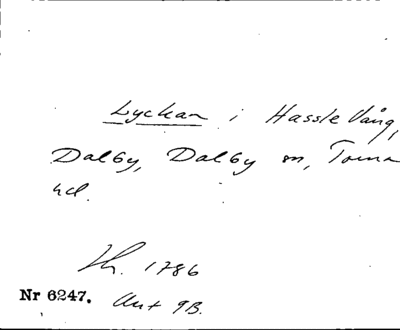 Lyckan i Hassle Vång,
Dalby, Dalby sn, Torna
hd.
1786
Nr 6247. Akt 9B.